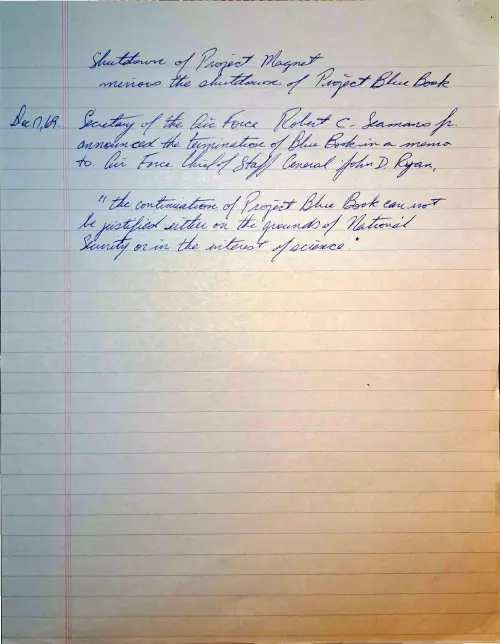 Shutdown of Project Magnet
mirrors the shutdown of Project Blue Book
Dec 17, 69. Secretary of the Air Force Robert C. Seamans Jr.
announced the termination of Blue Book in a memo
to Air Force Chief of Staff General John D. Ryan,
" the continuation of Project Blue Book can not
be justified either on the grounds of National
Security or in the interest of science "